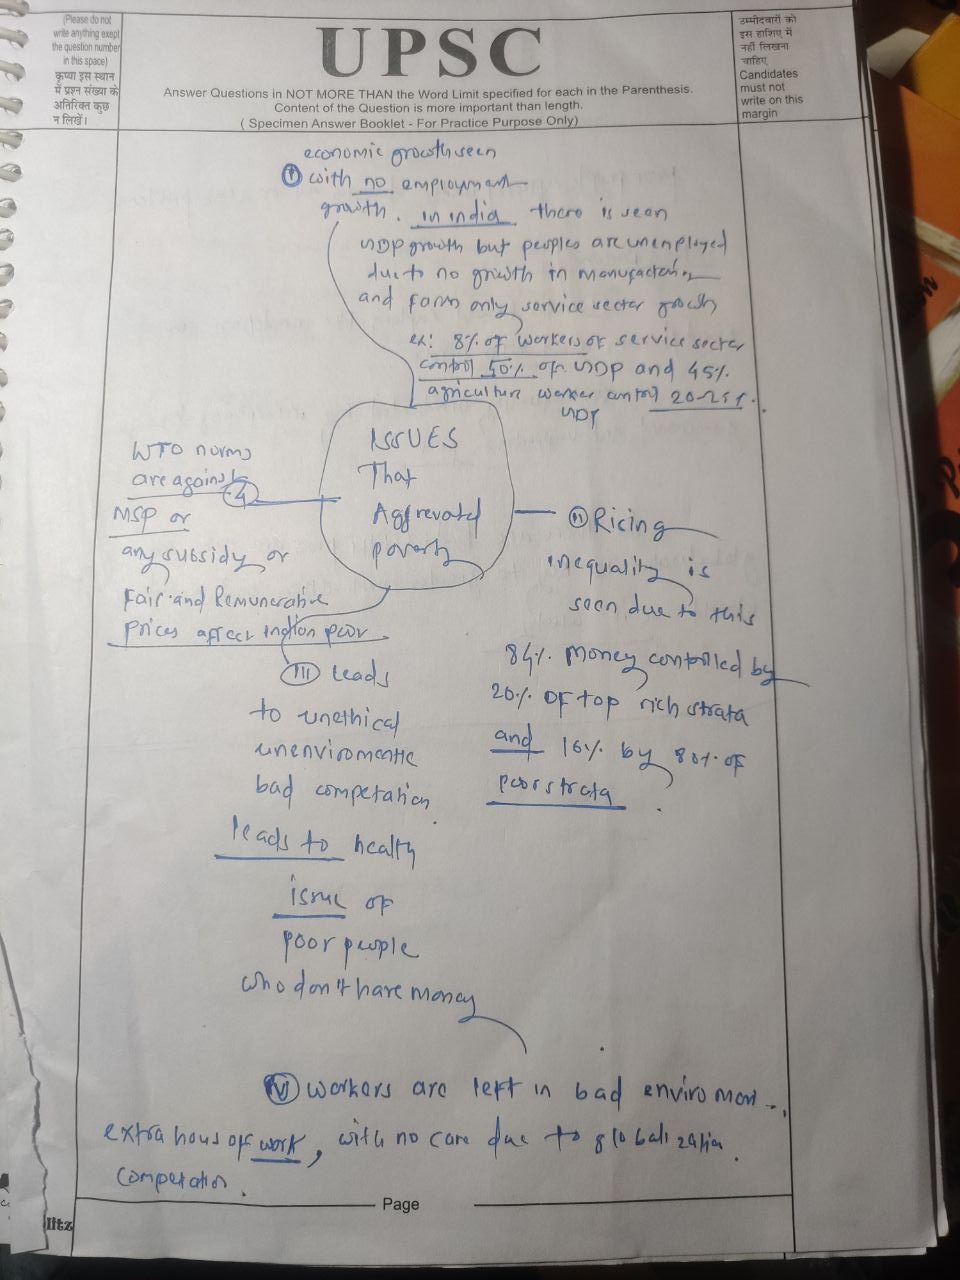 (Please do not
write anything exept
the question number
in this space)
कृप्या इस स्थान
में प्रश्न संख्या के
अतिरिक्त कुछ
न लिखें।
UPSC
Answer Questions in NOT MORE THAN the Word Limit specified for each in the Parenthesis.
Content of the Question is more important than length.
( Specimen Answer Booklet - For Practice Purpose Only)
उम्मीदवारों को
इस हाशिए में
नहीं लिखना
चाहिए
Candidates
must not
write on this
margin
economic growth seen
I with no employment
growth. in india there is seen
GDP growth but peoples are unemployed
due to no growth in manufacturing
and farm only service sector growth
ex: 8% of workers of service sector
control 50% of GDP and 45%
agriculture worker control 20-25%.
GDP
ISSUES
That
Aggrevated
poverty
WTO norms
are against
4
MSP or
any subsidy or
Fair and Remunerative
prices affect indian poor
II Ricing
inequality is
seen due to this
84% money controlled by
20% of top rich strata
and 16% by 80% of
poor strata.
III leads
to unethical
unenviromentic
bad competation.
leads to health
issue of
poor people
who don't have money
V workers are left in bad enviroment,
extra hous of work, with no care due to globalization.
competation.
Page
litz